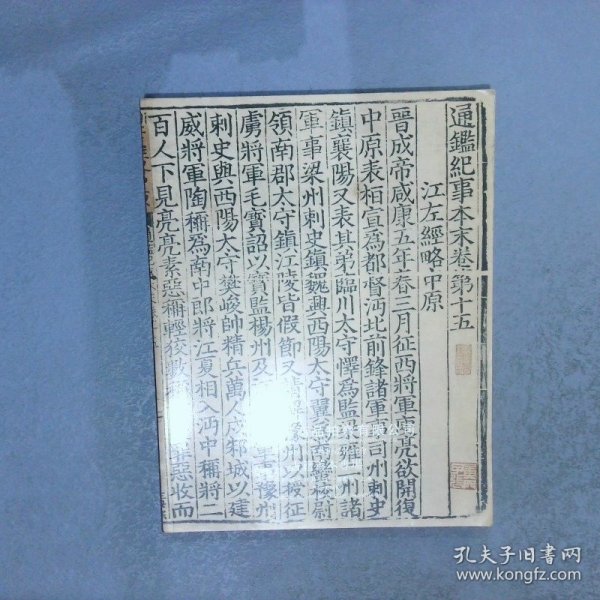 通鑑紀事本末卷第十五
江左經略中原
晉成帝咸康五年春三月征西將軍庾亮欲開復
中原表桓宣為都督沔北前鋒諸軍事司州刺史
鎮襄陽又表其弟臨川太守懌為監梁雍二州諸
軍事梁州刺史鎮魏興西陽太守翼為南蠻校尉
領南郡太守鎮江陵皆假節又請解豫州以授征
虜將軍毛寶詔以寶監楊州及江西諸軍事豫州
刺史與西陽太守樊峻帥精兵萬人戍邾城以建
威將軍陶稱為南中郎將江夏相入沔中稱將二
百人下見亮亮素惡稱輕狡數稱罪惡收而
孔夫子旧书网
www.kongfz.com